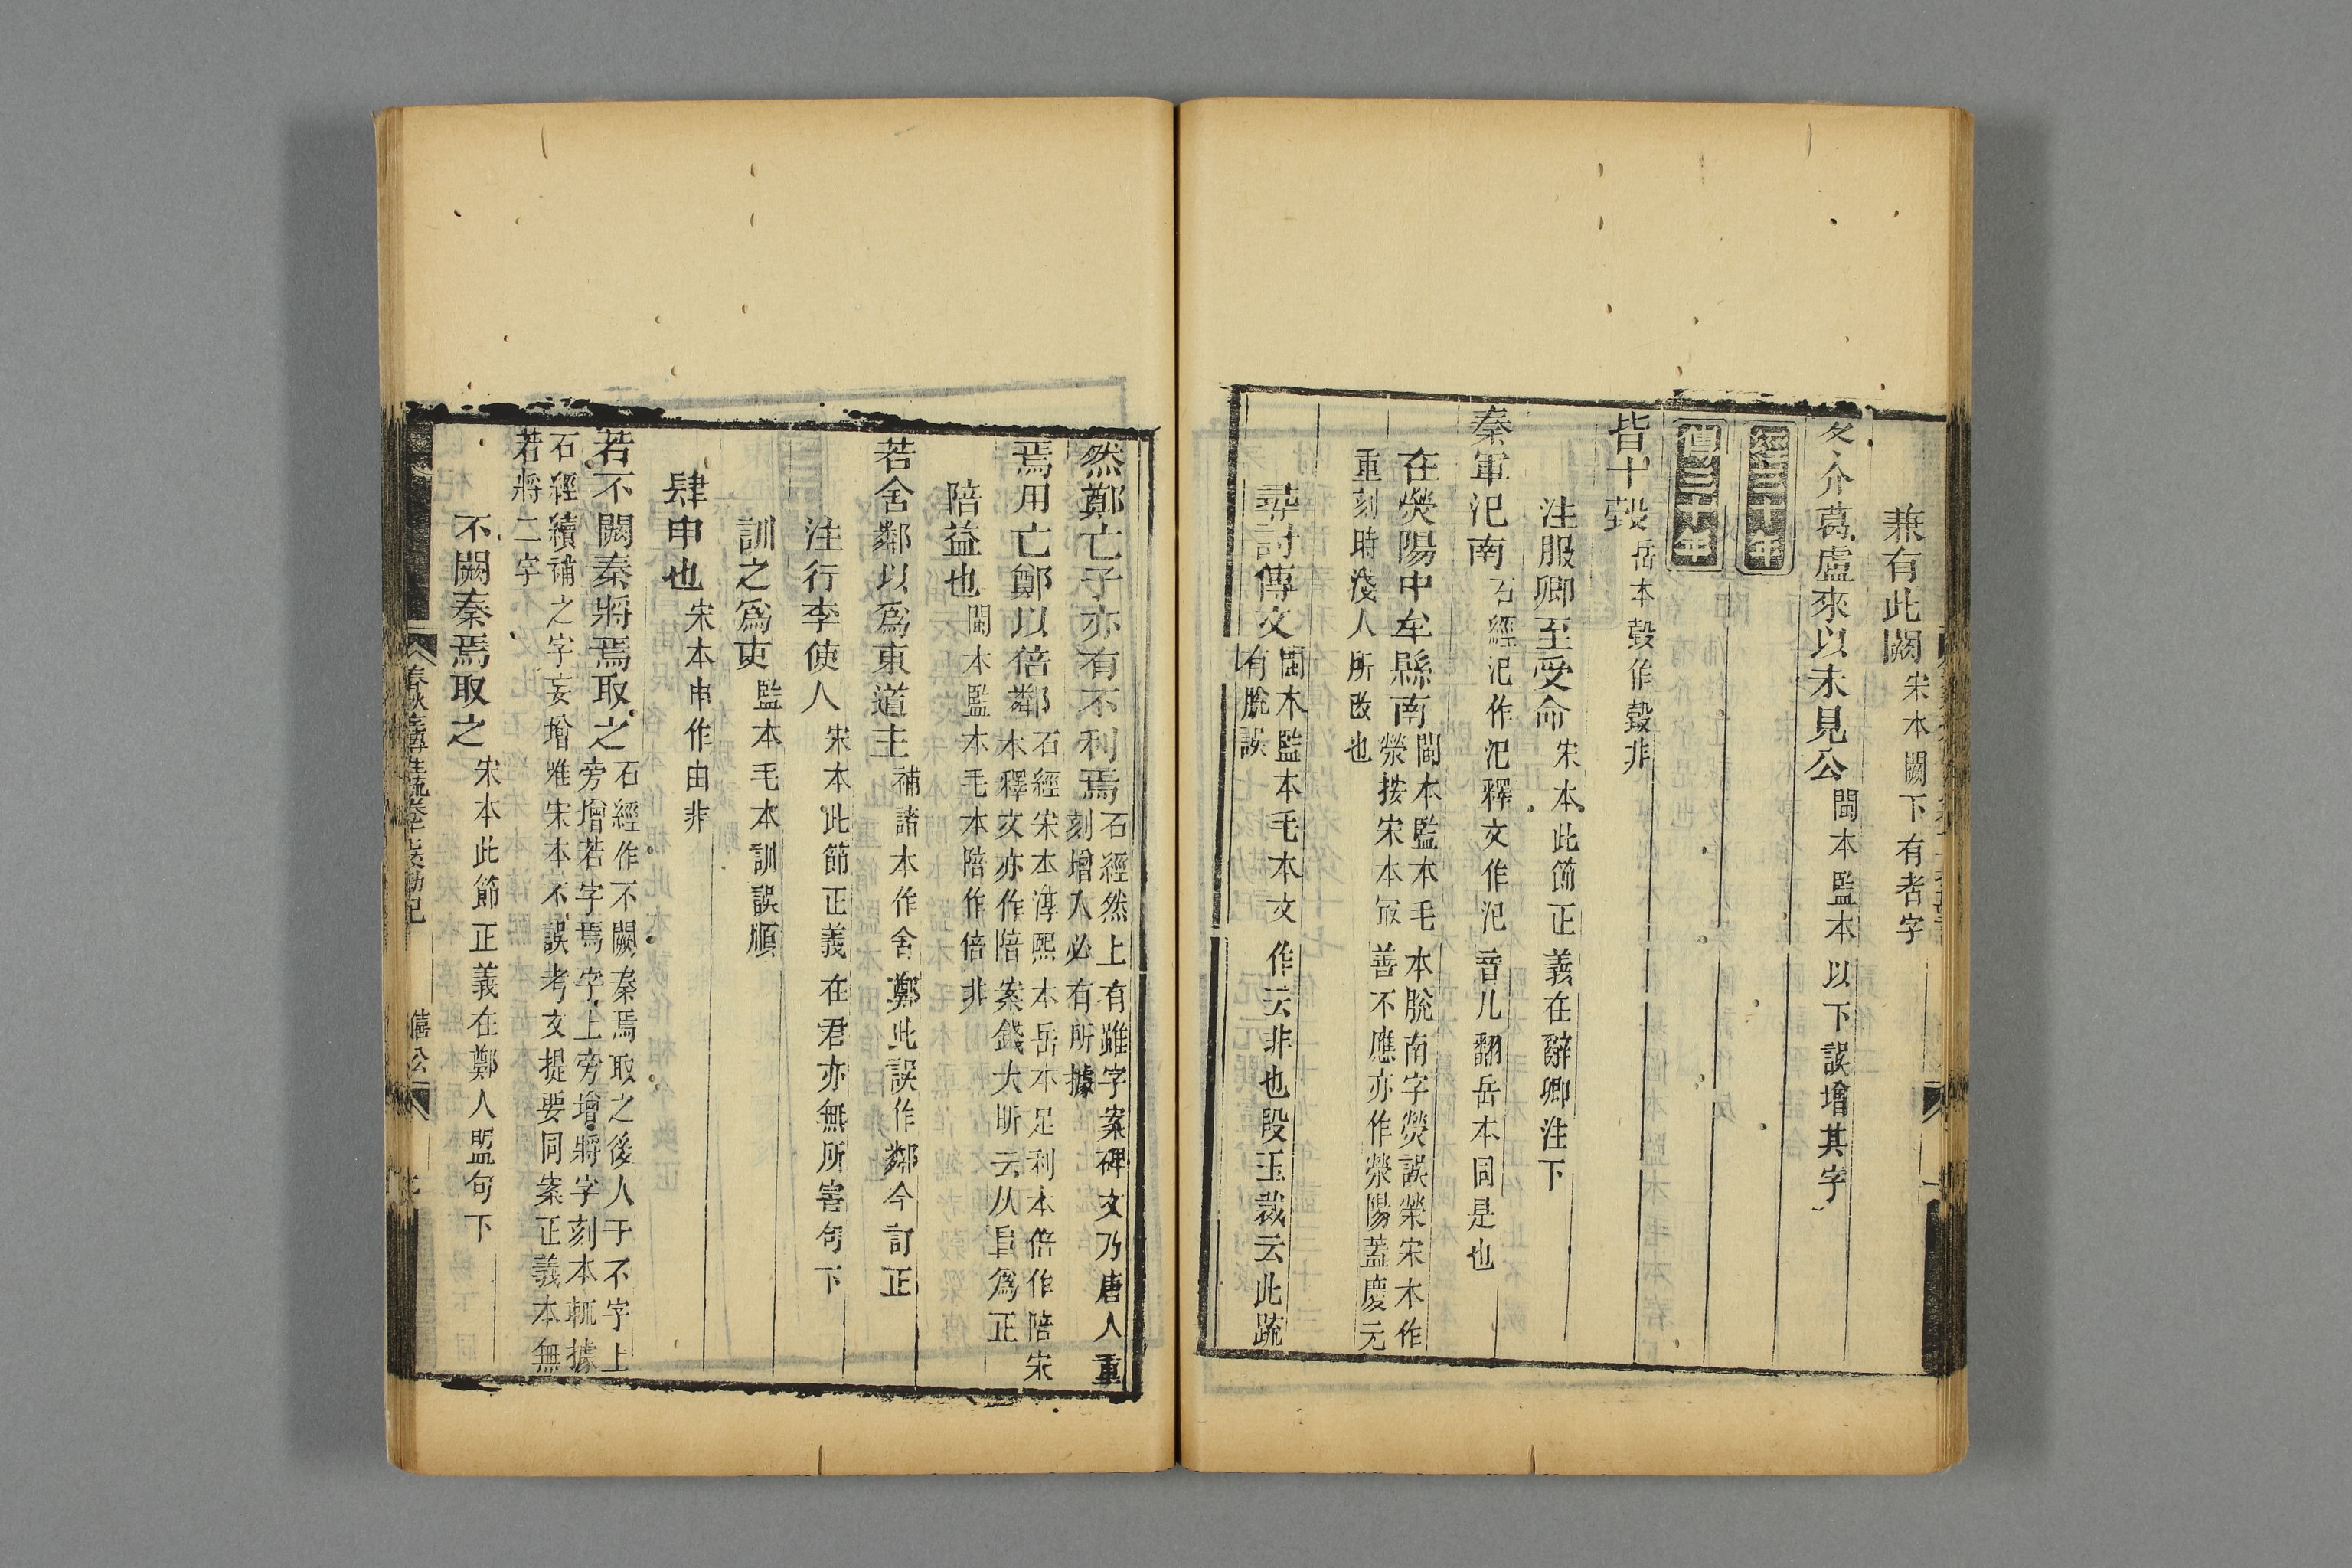 兼有此闕宋本闕下有者字
冬介葛盧來以未見公閩本監本以下誤增其字
經三十年
傳三十年
皆十瑴岳本瑴作穀非
注服卿至受命宋本此節正義在辭卿注下
秦軍氾南石經氾作汜釋文作氾音凡翻岳本同是也
在熒陽中牟縣南閩本監本毛本脫南字熒誤榮宋本作
滎按宋本冣善不應亦作滎陽蓋慶元
重刻時淺人所改也
尋討傳文閩本監本毛本文作云非也段玉裁云此疏
有脫誤
然鄭亡子亦有不利焉石經然上有雖字案碑文乃唐人重
刻增入必有所據
焉用亡鄭以倍鄰石經宋本淳熙本岳本足利本倍作陪宋
本釋文亦作陪案錢大昕云从𨸏爲正
陪益也閩本監本毛本陪作倍非
若舍鄰以爲東道主補諸本作舍鄭此誤作鄰今訂正
注行李使人宋本此節正義在君亦無所害句下
訓之爲吏監本毛本訓誤順
肆申也宋本申作由非
若不闕秦將焉取之石經作不闕秦焉取之後人于不字上
旁增若字焉字上旁增將字刻本輒據
石經續補之字妄增惟宋本不誤考文提要同案正義本無
若將二字
不闕秦焉取之宋本此節正義在鄭人盟句下
僖公